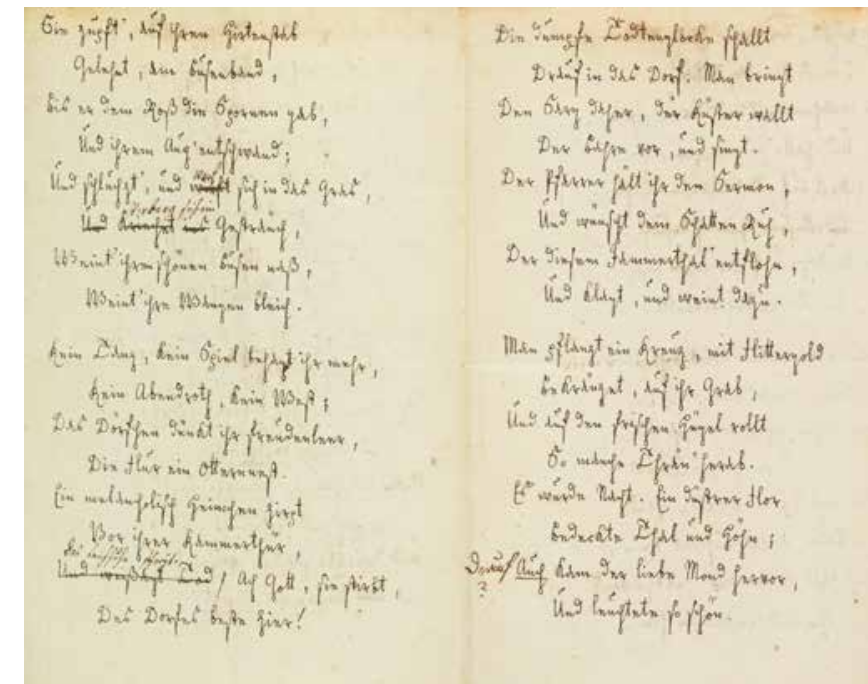 Sie zupft', auf ihren Hirtenstab
Gelehnt, am Busenband,
Bis er dem Roß die Spornen gab,
Und ihrem Aug' entschwand;
Und schluchzt', und sich in das Gras,
Verbarg sich im
Und kriechet ins Gesträuch,
Weint' ihren schönen Busen naß,
Weint' ihre Wangen bleich.
Kein Tanz, kein Spiel behagt ihr mehr,
Kein Abendroth, kein West;
Das Dörfchen dünkt ihr freudenleer,
Die Flur ein Otternnest.
Ein melancholisch Heimchen zirpt
Vor ihrer Kammerthür,
Und weißagt Tod! Ach Gott, sie stirbt,
Des Dorfes beste Zier!
Die dumpfe Todtenglocke schallt
Drauf in das Dorf. Man bringt
Den Sarg daher, der Küster wallt
Der Bahre vor, und singt.
Der Pfarrer hält ihr den Sermon,
Und wünscht dem Schatten Ruh,
Der diesem Jammerthal entflohn,
Und klagt, und weint dazu.
Man pflanzt ein Kreuz, mit Flittergold
Bekränzet, auf ihr Grab,
Und auf den frischen Hügel rollt
So manche Thrän' herab.
Es wurde Nacht. Ein düstrer Flor
Bedeckte Thal und Höhn;
Drauf Auch kam der liebe Mond hervor,
?
Und leuchtete so schön.